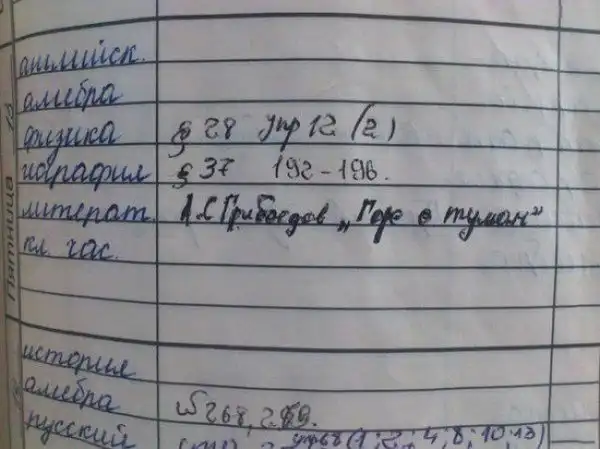 Пятница
английск.
алгебра
физика § 28 упр 12 (2)
география § 37 192-196.
литерат. А.С Грибоедов „Горе о туман"
кл. час.
история
алгебра № 268, 269.
русский упр 68 (1; 2; 4; 8; 10; 13)